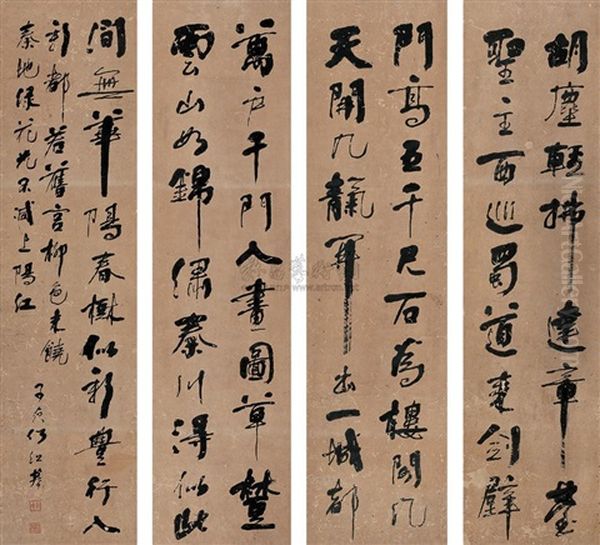 胡塵輕拂章臺
聖主西巡蜀道來劍壁
門高五千尺石為樓閣九
天開九靝開出一城都
萬戶千門入畫圖草
雲山如錦繡秦川得似此
間無華陽春樹似新豐行入
新都若舊宮柳色未饒
秦地綠花光不減上陽紅
子貞何紹基